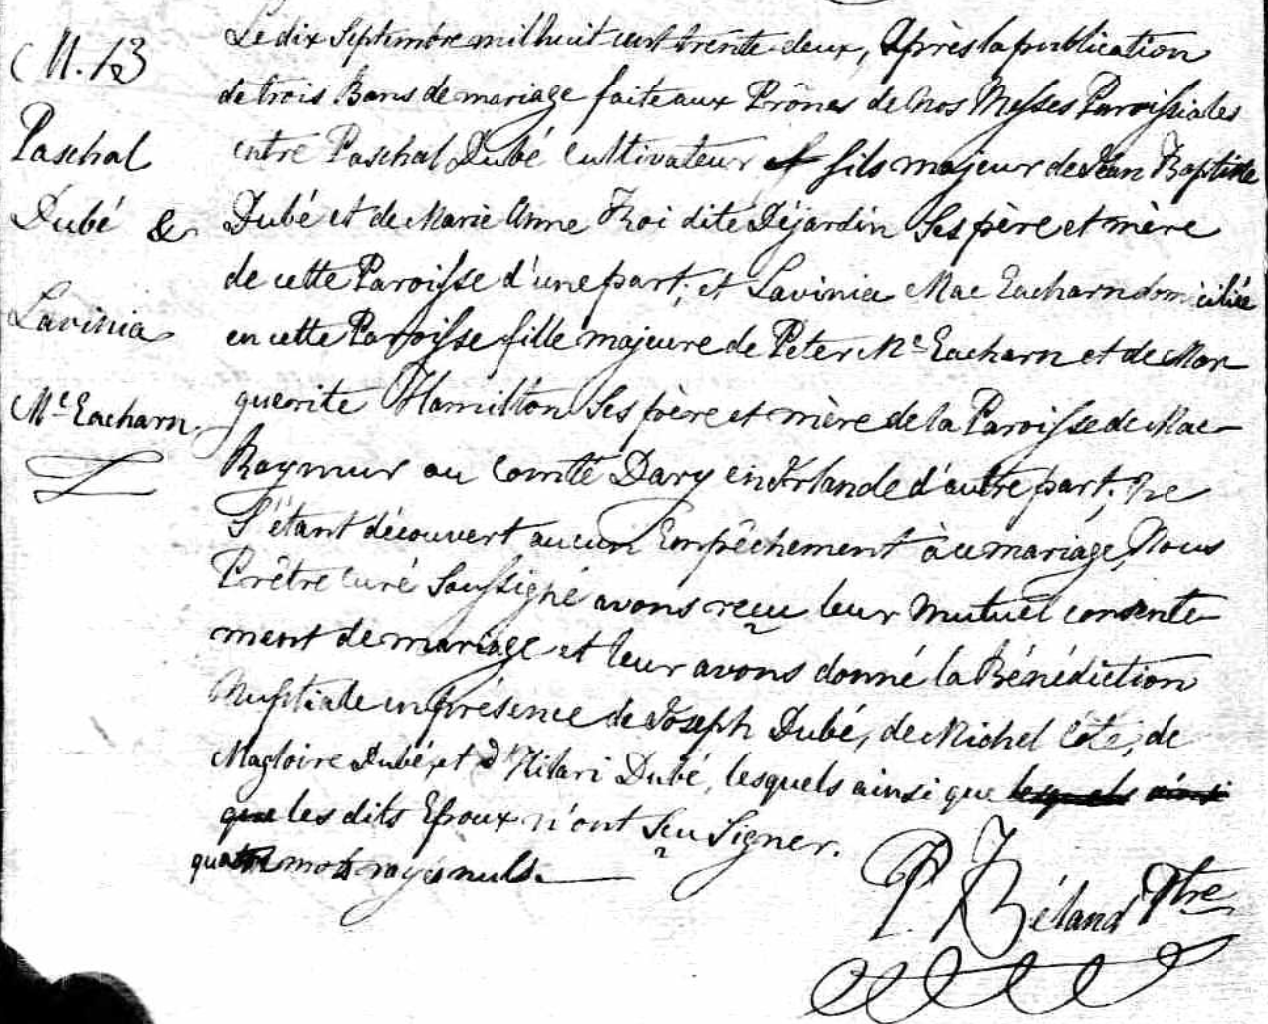 M. 13
Paschal
Dubé &
Lavinia
Mc Eacharn
Le dix Septembre mil huit cent trente-deux, Après la publication
de trois Bans de mariage faite aux Prônes de Nos Messes Paroissiales
entre Paschal Dubé Cultivateur fils majeur de Jean Baptiste
Dubé et de Marie Anne Roi dite Déjardin Ses père et mère
de cette Paroisse d'une part; et Lavinia Mac Eacharn domiciliée
en cette Paroisse fille majeure de Peter Mc Eacharn et de Mar-
guerite Hamilton Ses père et mère de la Paroisse de Mac-
Raymur au Comté Dary en Irlande d'autre part; Ne
S'étant découvert aucun Empêchement à ce mariage, Nous
Prêtre Curé Soussigné avons reçu leur Mutuel consente-
ment de mariage et leur avons donné la Bénédiction
Nuptiale en présence de Joseph Dubé, de Michel Côté, de
Magloire Dubé, et d'Hilari Dubé, lesquels ainsi que lesquels ainsi
que les dits Epoux n'ont Seu Signer.
quatre mots rayés nuls.
P. Béland Ptre